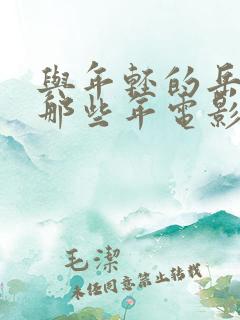 與年輕的岳
那些年電影
毛潔
未经同意禁止转载